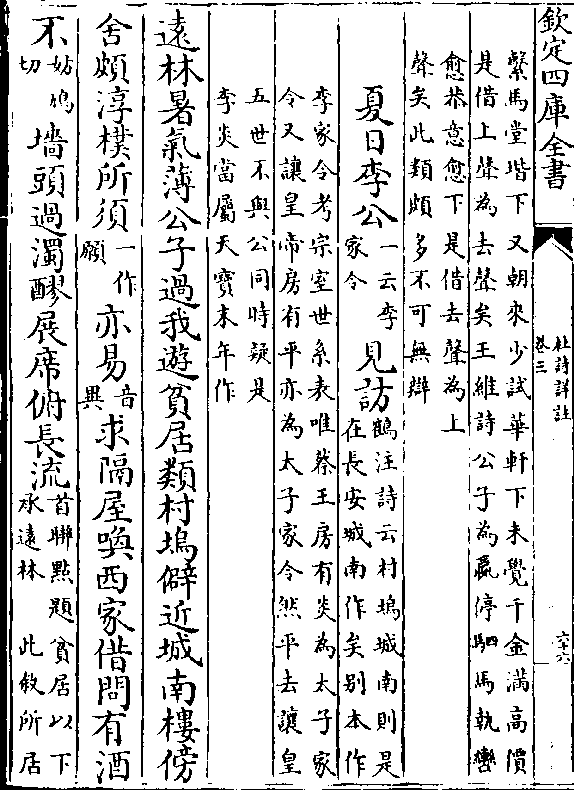 欽定四庫全書
杜詩詳註
卷三
六十六
繫馬堂堦下又朝來少試華軒下未覺千金滿高價
是借上聲為去聲矣王維詩公子為嬴停駟馬執轡
愈恭意愈下是借去聲為上
聲矣此類頗多不可無辯
夏日李公一云李家令見訪鶴注詩云村塢城南則是在長安城南作矣别本作
李家令考宗室世系表唯蔡王房有炎為太子家
令又讓皇帝房有平亦為太子家令然平去讓皇
五世不與公同時疑是
李炎當屬天寶末年作
遠林暑氣薄公子過我遊貧居類村塢僻近城南樓傍
舍頗淳樸所須一作願亦易音異求隔屋喚西家借問有酒
不妨鳩切墻頭過濁醪展席俯長流首聯點題貧居以下承遠林 此敘所居